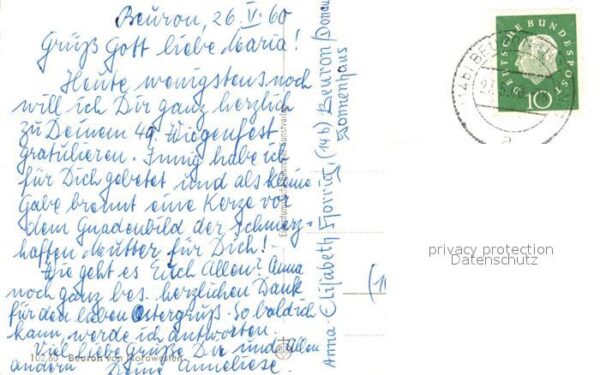 Beuron, 26. V. 60
Grüß Gott liebe Maria!
Heute wenigstens noch
will ich Dir ganz herzlich
zu Deinem 49. Wiegenfest
gratulieren. Innig habe ich
für Dich gebetet und als kleine
Gabe brennt eine Kerze vor
dem Gnadenbild der schmerz-
haften Mutter für Dich! -
Wie geht es Euch Allen? Anna
noch ganz bes. herzlichen Dank
für den lieben Ostergruß. So bald ich
kann werde ich antworten.
Viel liebe Grüße Dir und allen
andern Deine Anneliese.
Anna Elisabeth (14b) Beuron/Donau
Sonnenhaus
Beuron von Nordwesten
DEUTSCHE BUNDESPOST
10
BEURON
privacy protection
Datenschutz